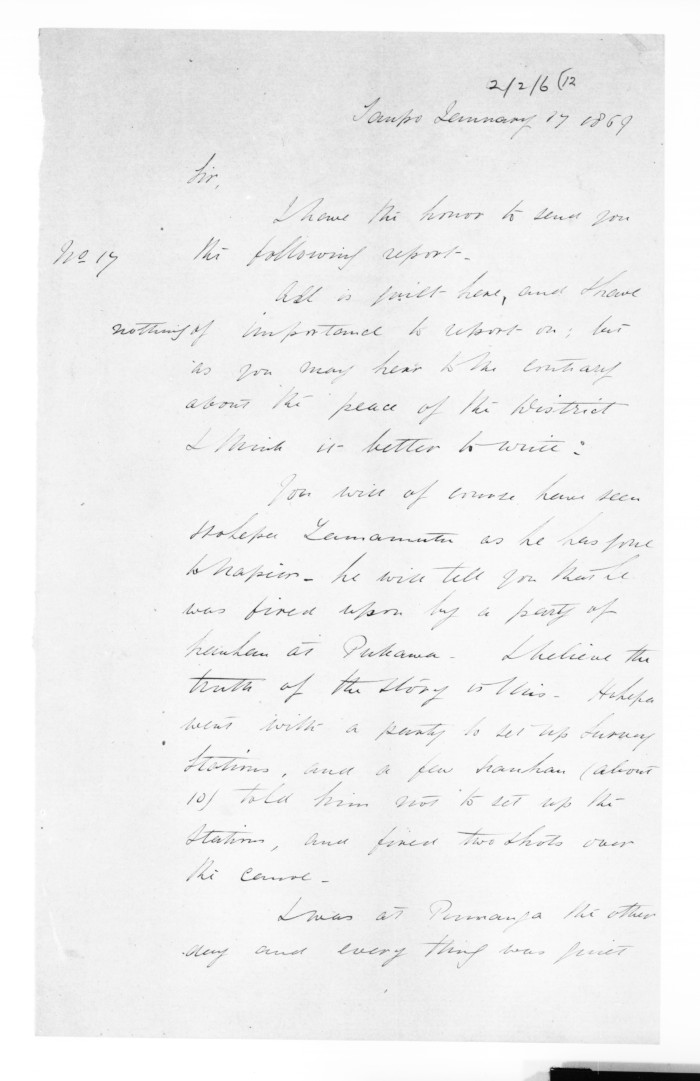 2/2/6 (12
Taupo January 17 1869
Sir,
I have the honor to send you
No 17 the following report -
All is quiet here, and I have
nothing of importance to report on; but
as you may hear to the contrary
about the peace of the District
I think it better to write:
You will of course have seen
Hohepa Tamamutu as he has gone
to Napier - he will tell you that he
was fired upon by a party of
hauhau at Pukawa - I believe the
truth of the story is this - Hohepa
went with a party to set up Survey
Stations, and a few hauhau (about
10) told him not to set up the
Station, and fired two shots over
the canoe -
I was at Runanga the other
day and every thing was quiet